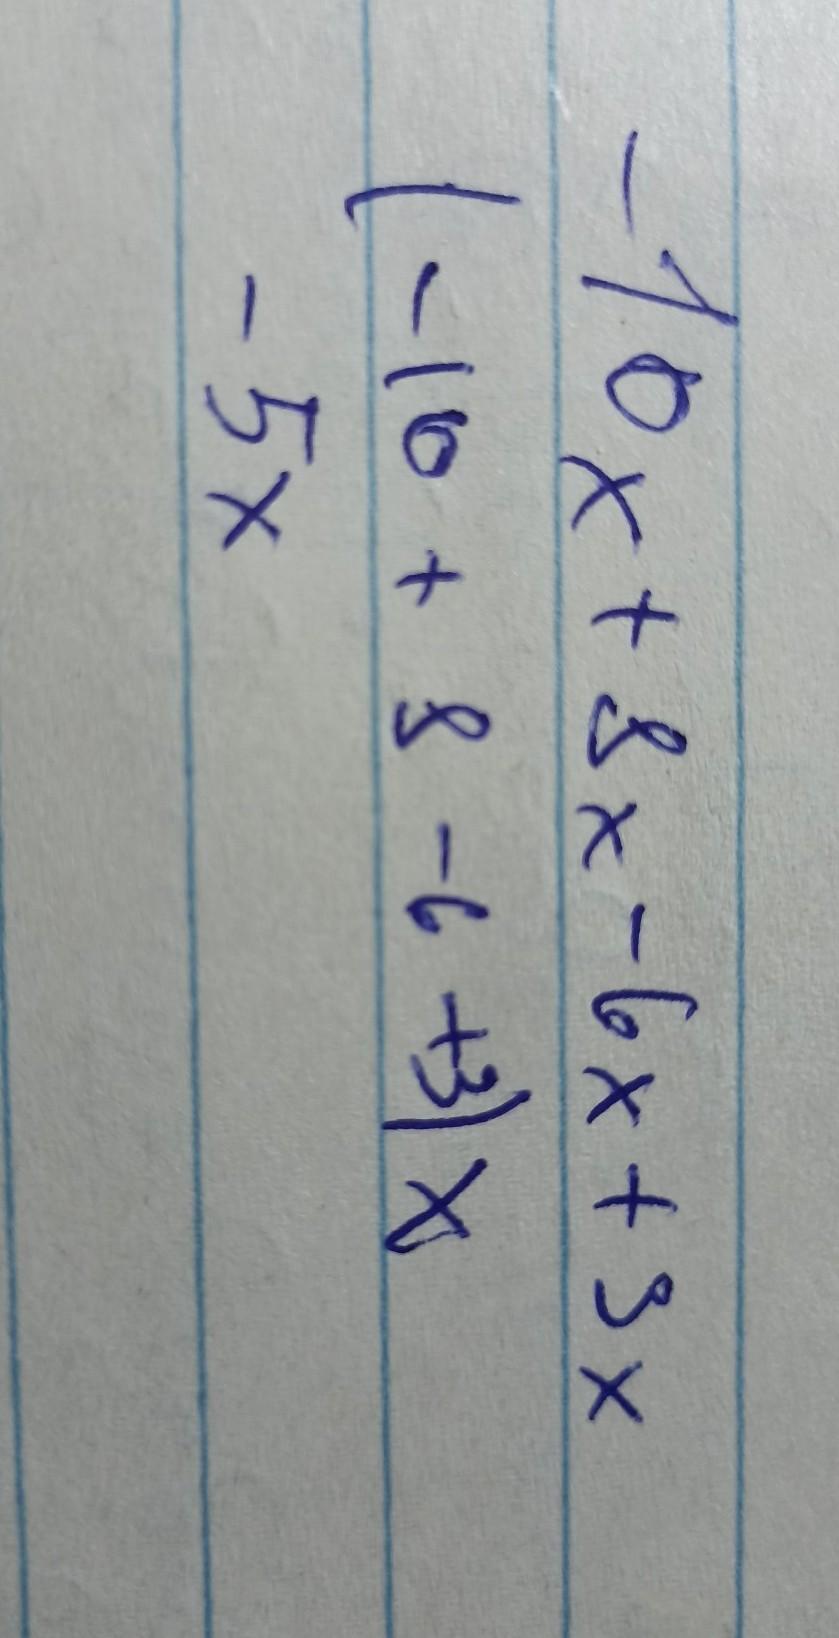 -10x + 8x - 6x + 3x
(-10 + 8 - 6 + 3)x
-5x